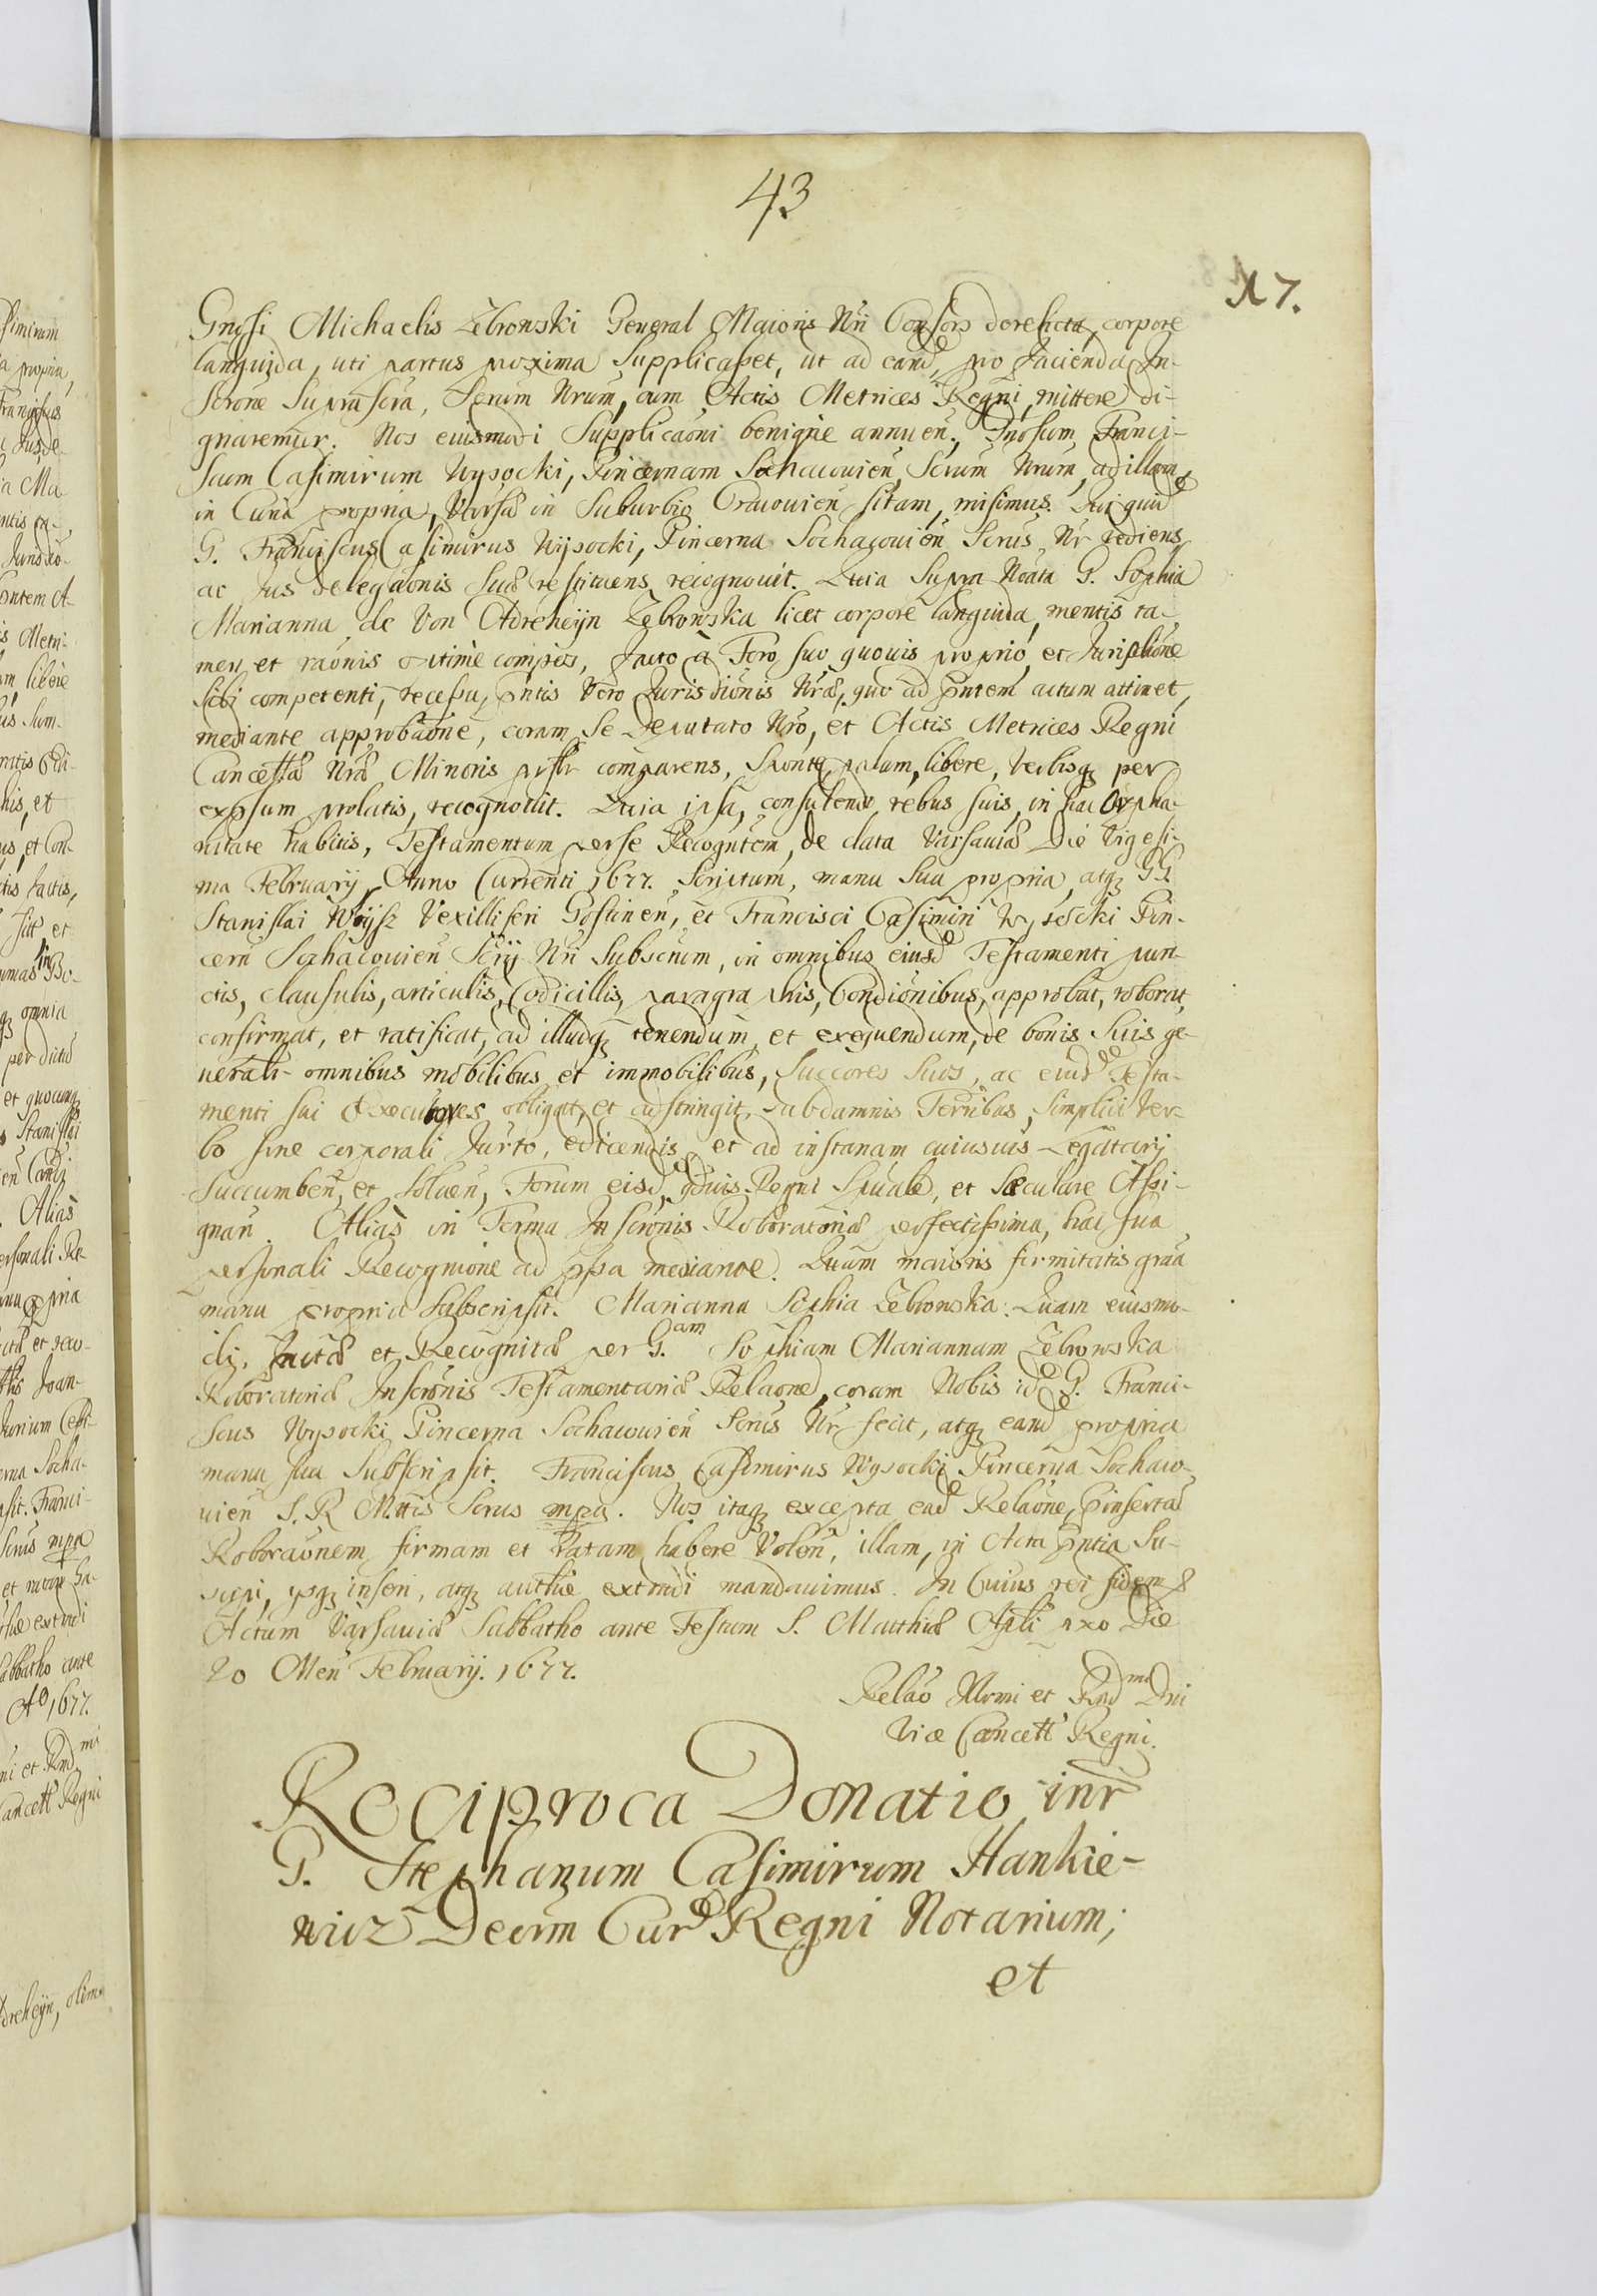 43
N 7.
Gnosi Michaelis Zebrowski General Maioris Nri Consors derelicta, corpore
languida, uti partus proxima Supplicasset, ut ad eand, pro facienda In-
scrone Suprascra, Scrum Nrum, cum Actis Metrices Regni, mittere di-
gnaremur. Nos eiusmodi Supplicaoni benigne annuen. Gnosum Franci-
scum Casimirum Wysocki, Pincernam Sochacouien, Scrum Nrum, ad illam
in Curia propria, Varsa in Suburbio Cracouien sitam, misimus. Qui quid
G. Franciscus Casimirus Wysocki, Pincerna Sochacouien Scrus Nr rediens
ac Jus delegaonis Suæ restituens recognouit. Quia Supra Noata G. Sophia
Marianna de Von Adreheyn Zebrowska licet corpore languida, mentis ta-
men et raonis optime compos, facto a Foro suo quouis proprio et Jurisdione
sibi competenti, recessu, pntis Vero Jurisdionis Nræ, quo ad pntem actum attinet,
mediante approbaone, coram Se Deputato Nro, et Actis Metrices Regni
Cancellæ Nræ Minoris prslr comparens, Sponte, palam, libere, Verbisq per
expsum prolatis, recognouit. Quia ipsa, consulendo rebus suis, in hac Orpha-
nitate habitis, Testamentum per se Recogntem, de data Varsauiæ Die Vigesi-
ma February Anno Currenti 1677. Scriptum, manu Sua propria, atq GG.
Stanislai Woysz Vexilliferi Gostinen, et Francisci Casimiri Wysocki Pin-
cern Sochacouien Scrij Nri Subscrum, in omnibus eiusd Testamenti pun-
ctis, clausulis, articulis, Codicillis, paragraphis, Condionibus, approbat, roborat,
confirmat, et ratificat, ad illudq tenendum, et exequendum, de bonis Suis ge-
neralr omnibus mobilibus et immobilibus, Succores Suos, ac eiusd Testa-
menti sui Executores obligat, et adstringit, sub damnis Terribus, simplici Ver-
bo sine corporali Jurto, edicendis et ad instanam cuiusuis Legatarij
Succumben, et Soluen, Forum eisd, quis Regni Spuale, et Sæculare Assi-
gnan. Alias in Forma Inscronis Roboratoriæ perfectissima, hac sua
personali Recognione ad pssa mediante. Quam maioris firmitatis graa
manu propria Subscripsit. Marianna Sophia Zebrowska. Quam eiusmo-
di, factæ et Recognitæ per G.am Sophiam Mariannam Zebrowska
Roboratoriæ Inscronis Testamentariæ Relaone, coram Nobis id G. Franci-
scus Wysocki Pincerna Sochacouien Scrus Nr fecit, atq eand propria
manu sua Subscripsit. Franciscus Casimirus Wysocki Pincerna Sochaco-
uien S. R. Mttis Scrus mpa. Nos itaq excepta ead Relaone, pinsertæ
Roboraonem firmam et Ratam habere Volen, illam, in Acta pntia Su-
scipi, ysq inseri, atq authce extradi mandauimus. In Cuius rei fidem &
Actum Varsauiæ Sabbatho ante Festum S. Matthiæ Apli pxo Die
20 Men February. 1677.
Relao Illrmi et Rndmi Dni
Vice Cancell Regni.
Reciproca Donatio intr
G. Stephanum Casimirum Hankie-
wicz Decrm Curæ Regni Notarium;
et